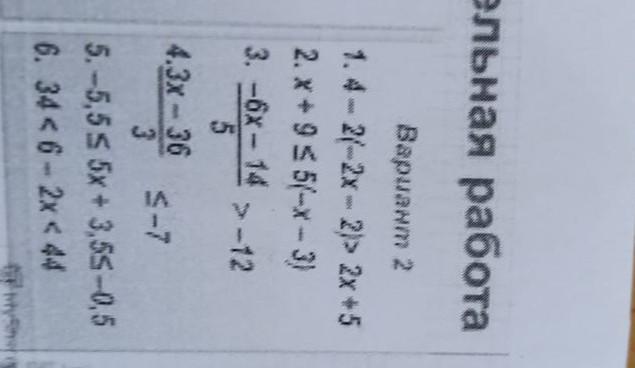 ельная работа
Вариант 2
1. 4 - 2(-2x - 2) > 2x + 5
2. x + 9 ≤ 5(-x - 3)
3. (-6x - 14)/5 > -12
4. (3x - 36)/3 ≤ -7
5. -5,5 ≤ 5x + 3,5 ≤ -0,5
6. 34 < 6 - 2x < 44